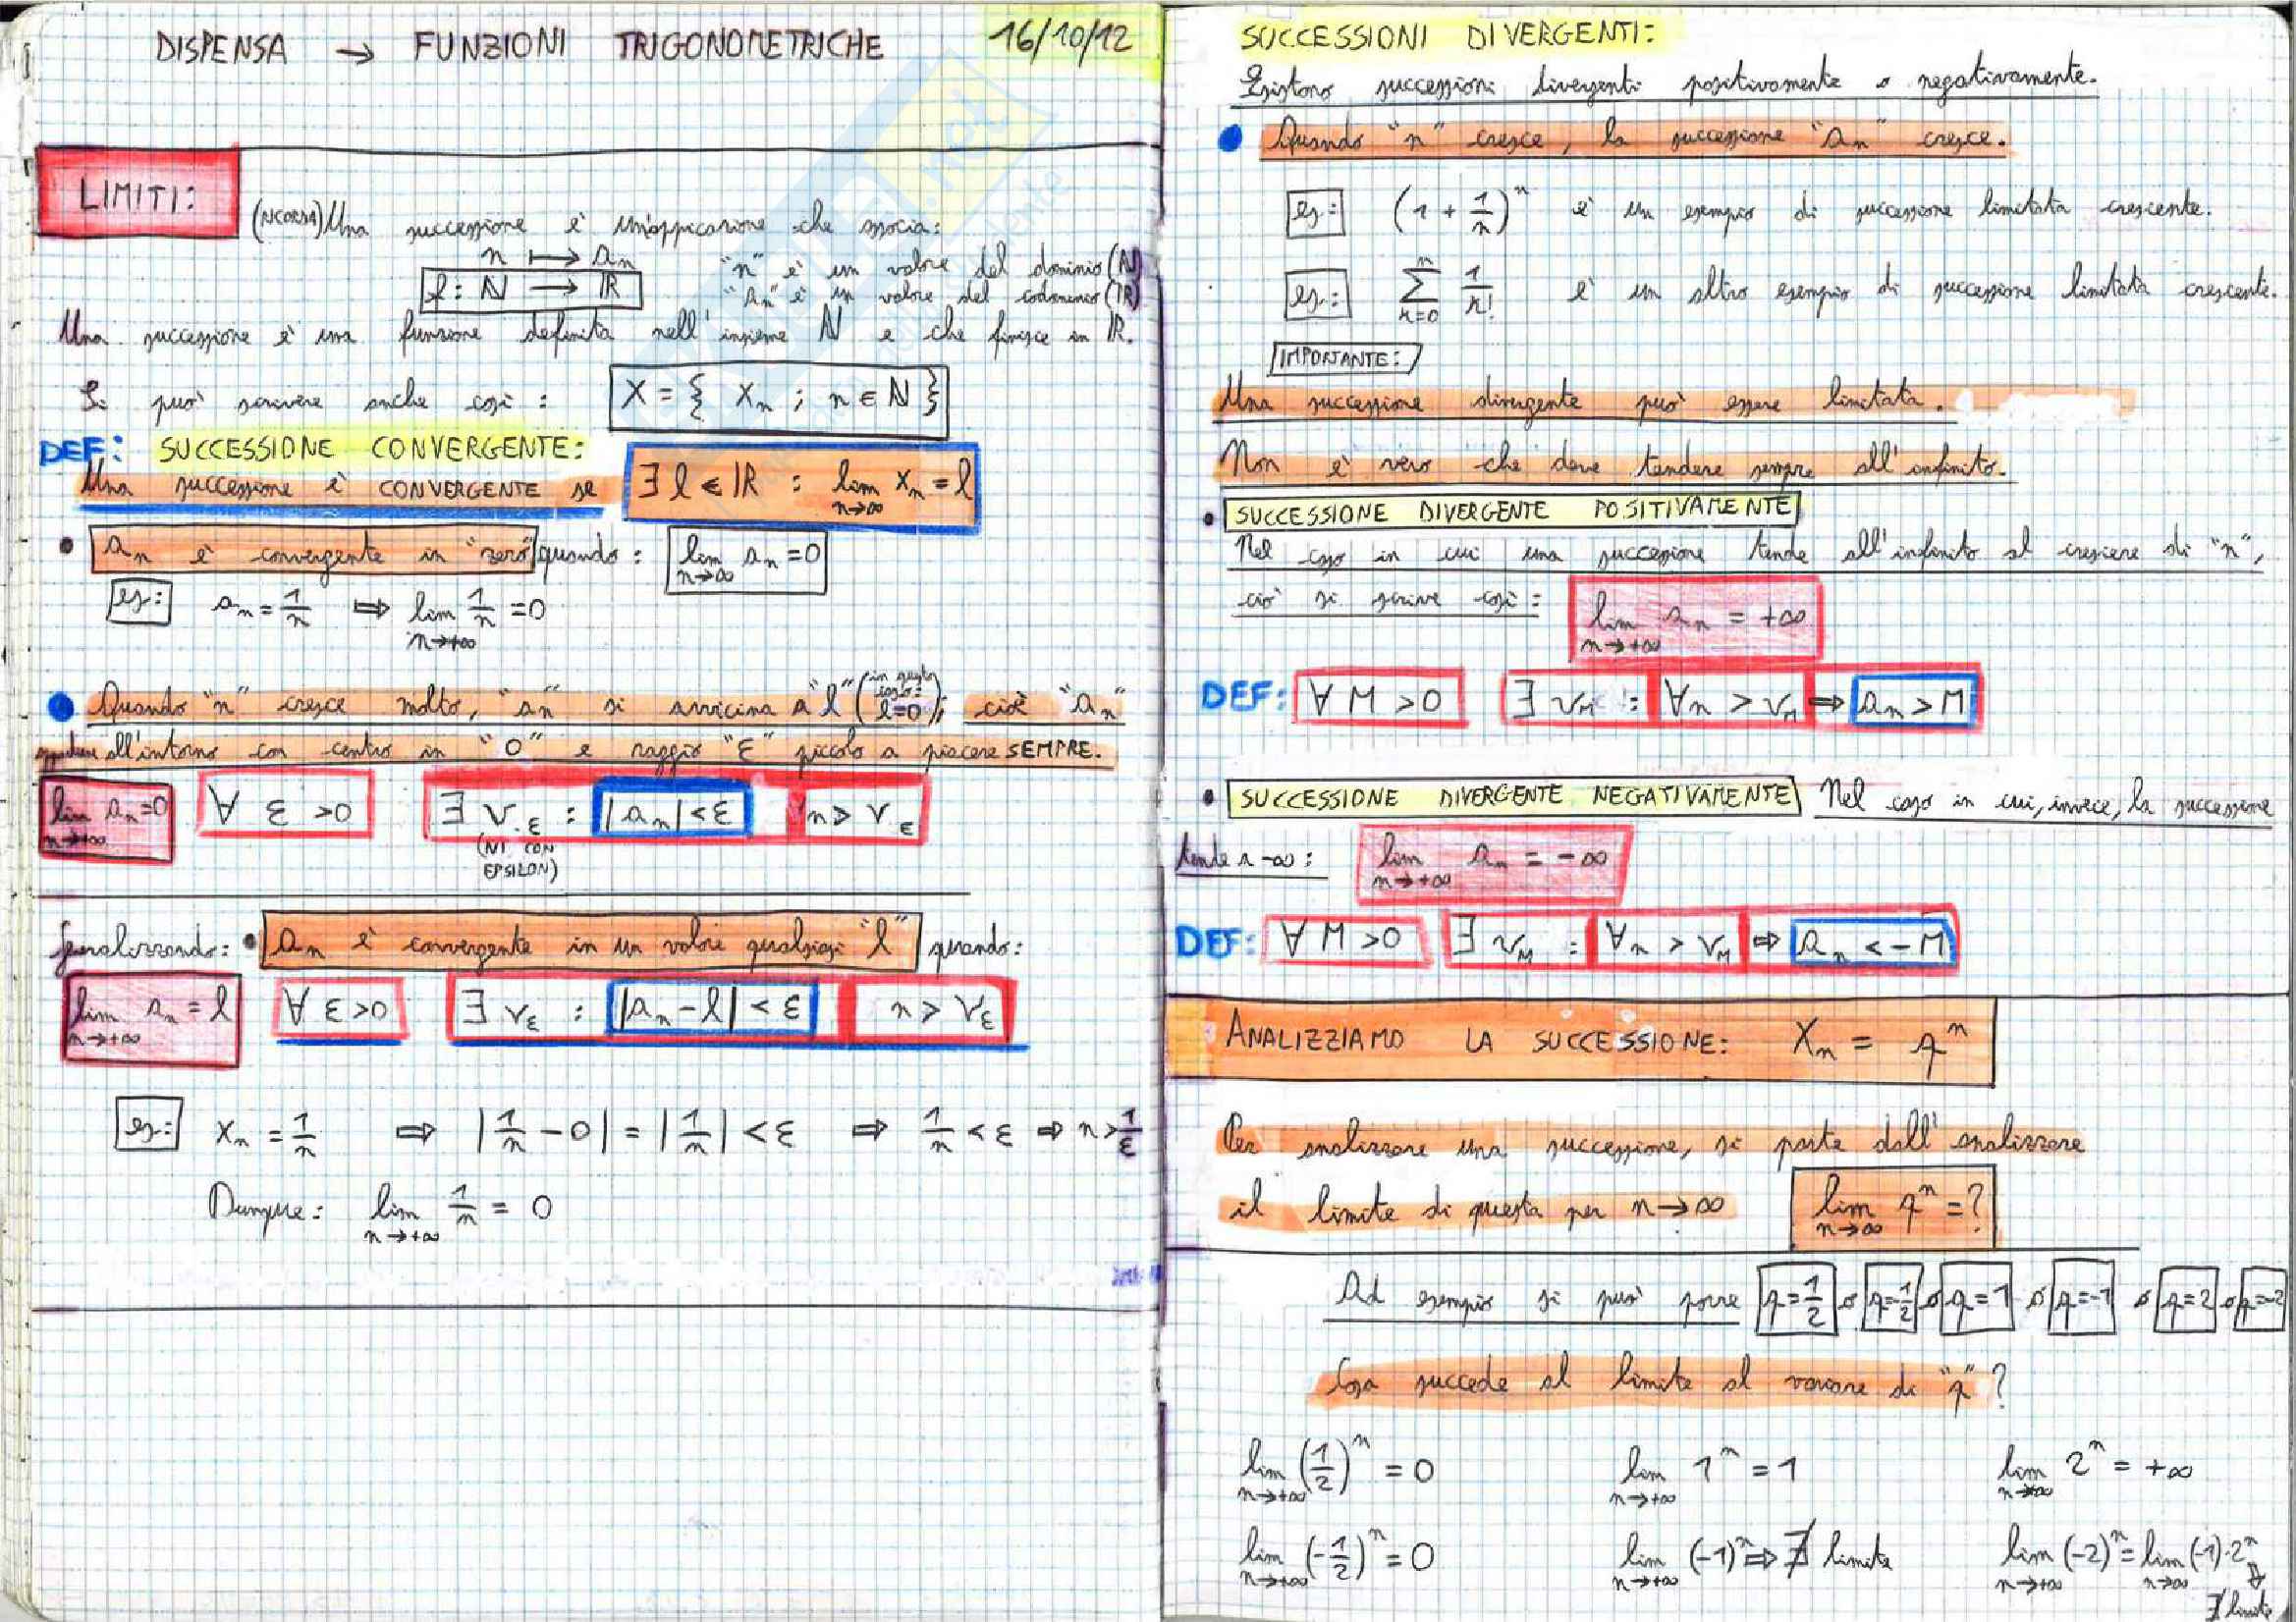 DISPENSA → FUNZIONI TRIGONOMETRICHE 16/10/12
LIMITI:
(RICORDA) Una successione è un'appicazione che associa:
n ⟼ an "n" è un valore del dominio (N)
f: N → R "an" è un valore del codominio (R)
Una successione è una funzione definita nell'insieme N e che finisce in R.
Si può scrivere anche così: X = { Xn ; n ∈ N }
DEF: SUCCESSIONE CONVERGENTE:
Una successione è CONVERGENTE se ∃ l ∈ R : lim n→∞ Xn = l
• an è convergente in "zero" quando: lim n→∞ an = 0
es: an = 1/n ⇒ lim n→+∞ 1/n = 0
• Quando "n" cresce molto, "an" si avvicina a "l" (in questo caso: l=0); cioè "an"
appartiene all'intorno con centro in "0" e raggio "ε" piccolo a piacere SEMPRE.
lim n→+∞ an = 0 ∀ ε > 0 ∃ νε : |an| < ε n > νε
(NI CON
EPSILON)
Generalizzando: • an è convergente in un valore qualsiasi "l" quando:
lim n→+∞ an = l ∀ ε > 0 ∃ νε : |an - l| < ε n > νε
es: Xn = 1/n ⇒ |1/n - 0| = |1/n| < ε ⇒ 1/n < ε ⇒ n > 1/ε
Dunque: lim n→+∞ 1/n = 0
SUCCESSIONI DIVERGENTI:
Esistono successioni divergenti positivamente o negativamente.
• Quando "n" cresce, la successione "an" cresce.
es: (1 + 1/n)^n è un esempio di successione limitata crescente.
es: ∑ k=0 n 1/k! è un altro esempio di successione limitata crescente.
IMPORTANTE:
Una successione divergente può essere limitata.
Non è vero che deve tendere sempre all'infinito.
• SUCCESSIONE DIVERGENTE POSITIVAMENTE
Nel caso in cui una successione tende all'infinito al crescere di "n",
ciò si scrive così: lim n→+∞ an = +∞
DEF: ∀ M > 0 ∃ νM : ∀n > νM ⇒ an > M
• SUCCESSIONE DIVERGENTE NEGATIVAMENTE Nel caso in cui, invece, la successione
tende a -∞: lim n→+∞ an = -∞
DEF: ∀ M > 0 ∃ νM : ∀n > νM ⇒ an < -M
ANALIZZIAMO LA SUCCESSIONE: Xn = q^n
Per analizzare una successione, si parte dall'analizzare
il limite di questa per n→∞ lim n→∞ q^n = ?
Ad esempio si può porre q=1/2 o q=-1/2 o q=1 o q=-1 o q=2 o q=-2
Cosa succede al limite al variare di "q"?
lim n→+∞ (1/2)^n = 0 lim n→+∞ 1^n = 1 lim n→+∞ 2^n = +∞
lim n→+∞ (-1/2)^n = 0 lim n→+∞ (-1)^n ⇒ ∄ limite lim n→+∞ (-2)^n = lim n→∞ (-1)·2^n
∄ limite